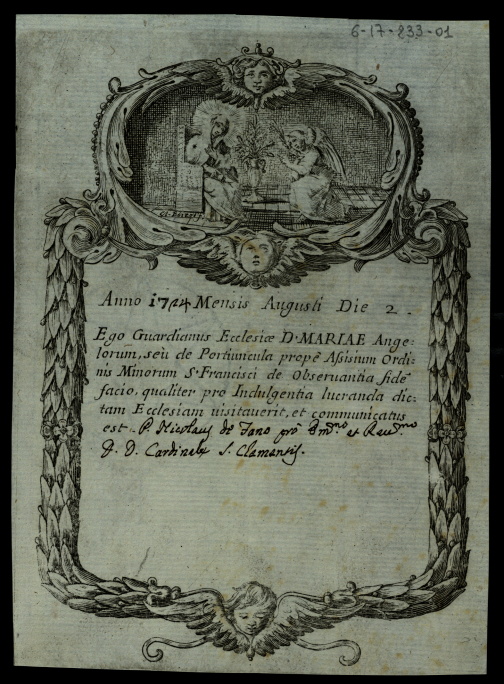 6-17-233-01
Anno 1724 Mensis Augusti Die 2.
Ego Guardianus Ecclesiæ D. MARIAE Ange=
lorum, seù de Portiuncula propè Assisium Ordi=
nis Minorum S. Francisci de Obseruantia fidẽ
facio, qualiter pro Indulgentia lucranda dic=
tam Ecclesiam uisitauerit, et communicatus
est. P. Nicolaus de Fano prò Em.mo et Reu.mo
D. D. Cardinale S. Clementis.